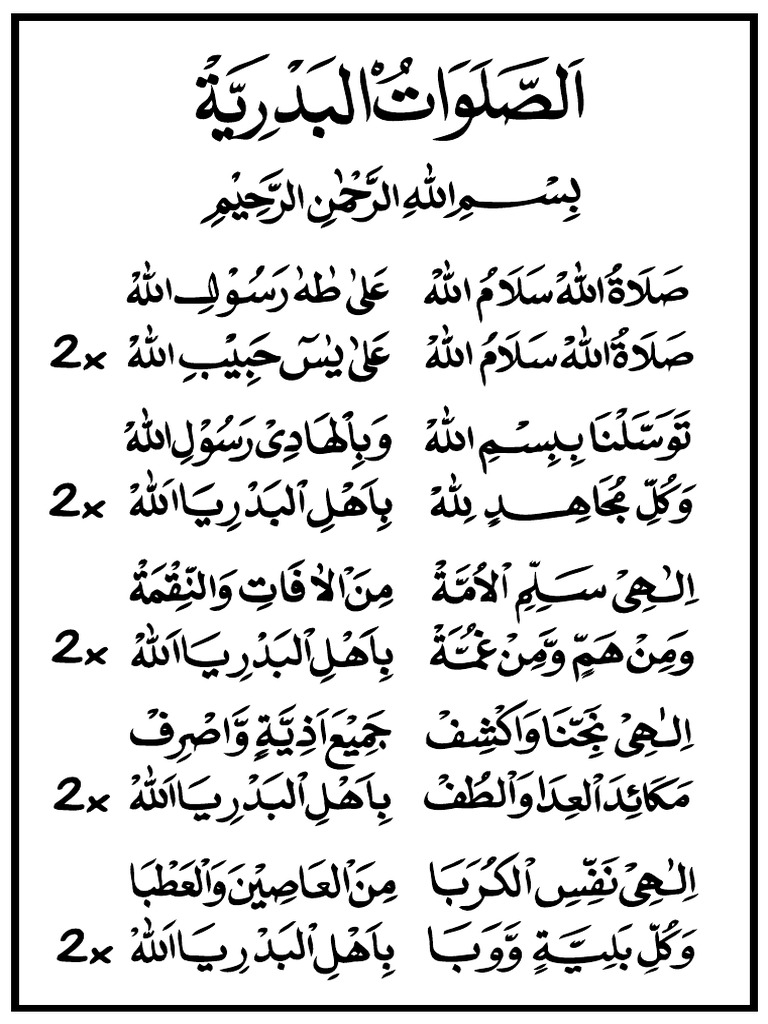 اَلصَّلَوَاتُ الْبَدْرِيَّةْ
بِسْمِ اللهِ الرَّحْمٰنِ الرَّحِيْمِ
صَلَاةُ اللهْ سَلَامُ اللهْ عَلىٰ طٰهٰ رَسُوْلِ اللهْ
صَلَاةُ اللهْ سَلَامُ اللهْ عَلىٰ يٰسٓ حَبِيْبِ اللهْ 2x
تَوَسَّلْنَا بِبِسْمِ اللهْ وَبِالْهَادِىْ رَسُوْلِ اللهْ
وَكُلِّ مُجَاهِدٍ لِلهْ بِاَهْلِ الْبَدْرِ يَا اَللهْ 2x
اِلٰهِىْ سَلِّمِ الْاُمَّةْ مِنَ الْاٰفَاتِ وَالنِّقْمَةْ
وَمِنْ هَمٍّ وَّمِنْ غُمَّةْ بِاَهْلِ الْبَدْرِ يَا اَللهْ 2x
اِلٰهِىْ نَجِّنَا وَاكْشِفْ جَمِيْعَ اَذِيَّةٍ وَّاصْرِفْ
مَكَائِدَ الْعِدَا وَالْطُفْ بِاَهْلِ الْبَدْرِ يَا اَللهْ 2x
اِلٰهِىْ نَفِّسِ الْكُرَبَا مِنَ الْعَاصِيْنَ وَالْعَطْبَا
وَكُلِّ بَلِيَّةٍ وَّوَبَا بِاَهْلِ الْبَدْرِ يَا اَللهْ 2x